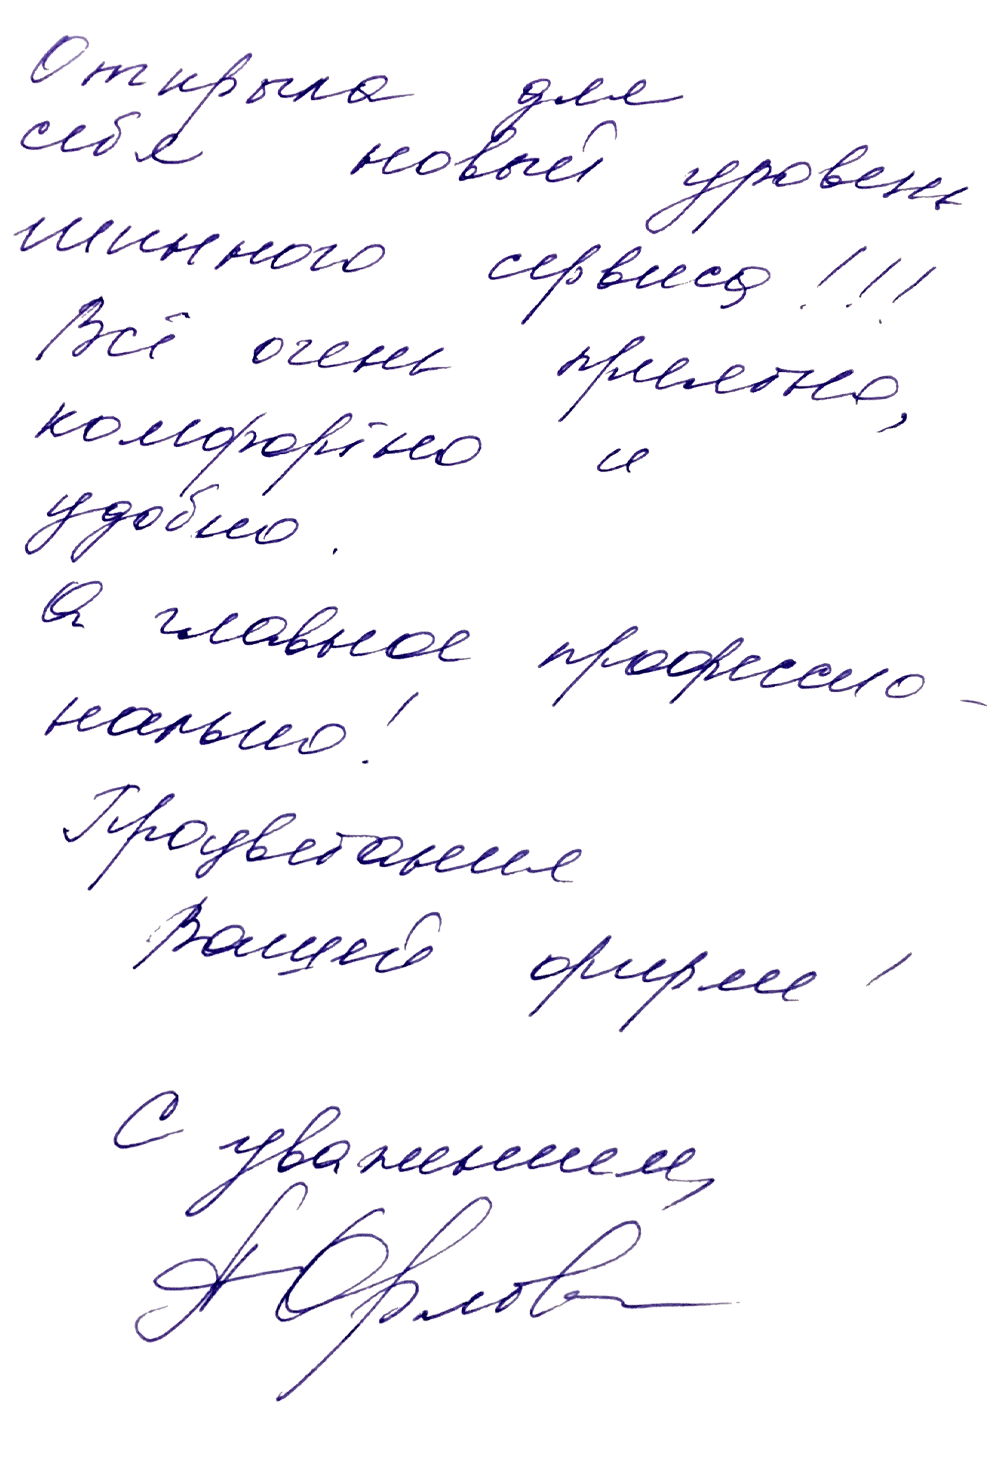 Открыла для
себя новый уровень
шинного сервиса!!!
Всё очень приятно,
комфортно и
удобно.
А главное профессио-
нально!
Процветания
Вашей фирме!
С уважением,
А Орлова